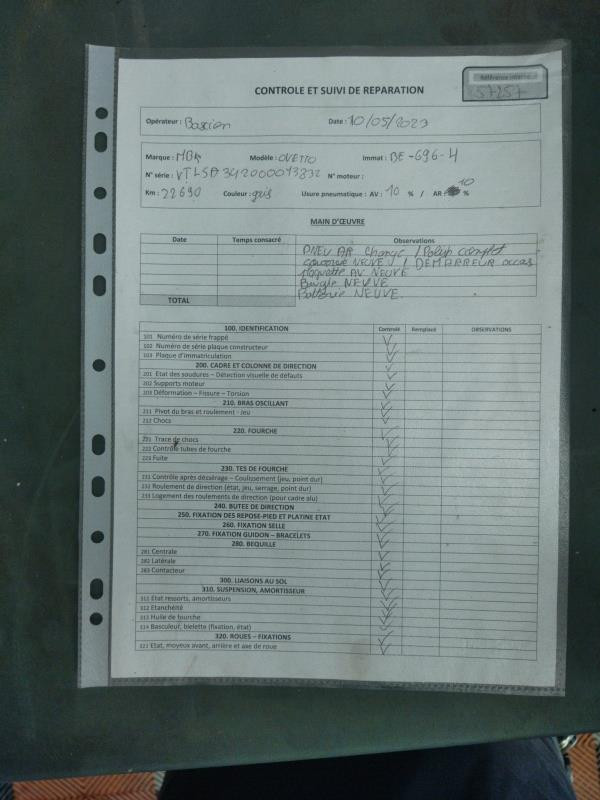 CONTROLE ET SUIVI DE REPARATION
Référence interne
57257
Opérateur : Bascien Date : 10/05/2023
Marque : MBK Modèle : OVETTO Immat : BE-696-H
N° série : N° moteur :
Km : 22690 Couleur : gris Usure pneumatique : AV : 10 % / AR : 10 %
MAIN D'ŒUVRE
Date Temps consacré Observations
PNEU AR Change / Polish complet
courroie NEUVE / DEMARREUR occas
plaquette AV NEUVE
Bougie NEUVE
Batterie NEUVE.
TOTAL
100. IDENTIFICATION Contrôlé Remplacé OBSERVATIONS
101 Numéro de série frappé
102 Numéro de série plaque constructeur
103 Plaque d'immatriculation
200. CADRE ET COLONNE DE DIRECTION
201 Etat des soudures – Détection visuelle de défauts
202 Supports moteur
203 Déformation – Fissure – Torsion
210. BRAS OSCILLANT
211 Pivot du bras et roulement - Jeu
212 Chocs
220. FOURCHE
221 Trace de chocs
222 Contrôle tubes de fourche
223 Fuite
230. TES DE FOURCHE
231 Contrôle après désserage – Coulissement (jeu, point dur)
232 Roulement de direction (état, jeu, serrage, point dur)
233 Logement des roulements de direction (pour cadre alu)
240. BUTEE DE DIRECTION
250. FIXATION DES REPOSE-PIED ET PLATINE ETAT
260. FIXATION SELLE
270. FIXATION GUIDON – BRACELETS
280. BEQUILLE
281 Centrale
282 Latérale
283 Contacteur
300. LIAISONS AU SOL
310. SUSPENSION, AMORTISSEUR
311 Etat ressorts, amortisseurs
312 Etanchéité
313 Huile de fourche
314 Basculeur, bielette (fixation, état)
320. ROUES – FIXATIONS
321 Etat, moyeux avant, arrière et axe de roue